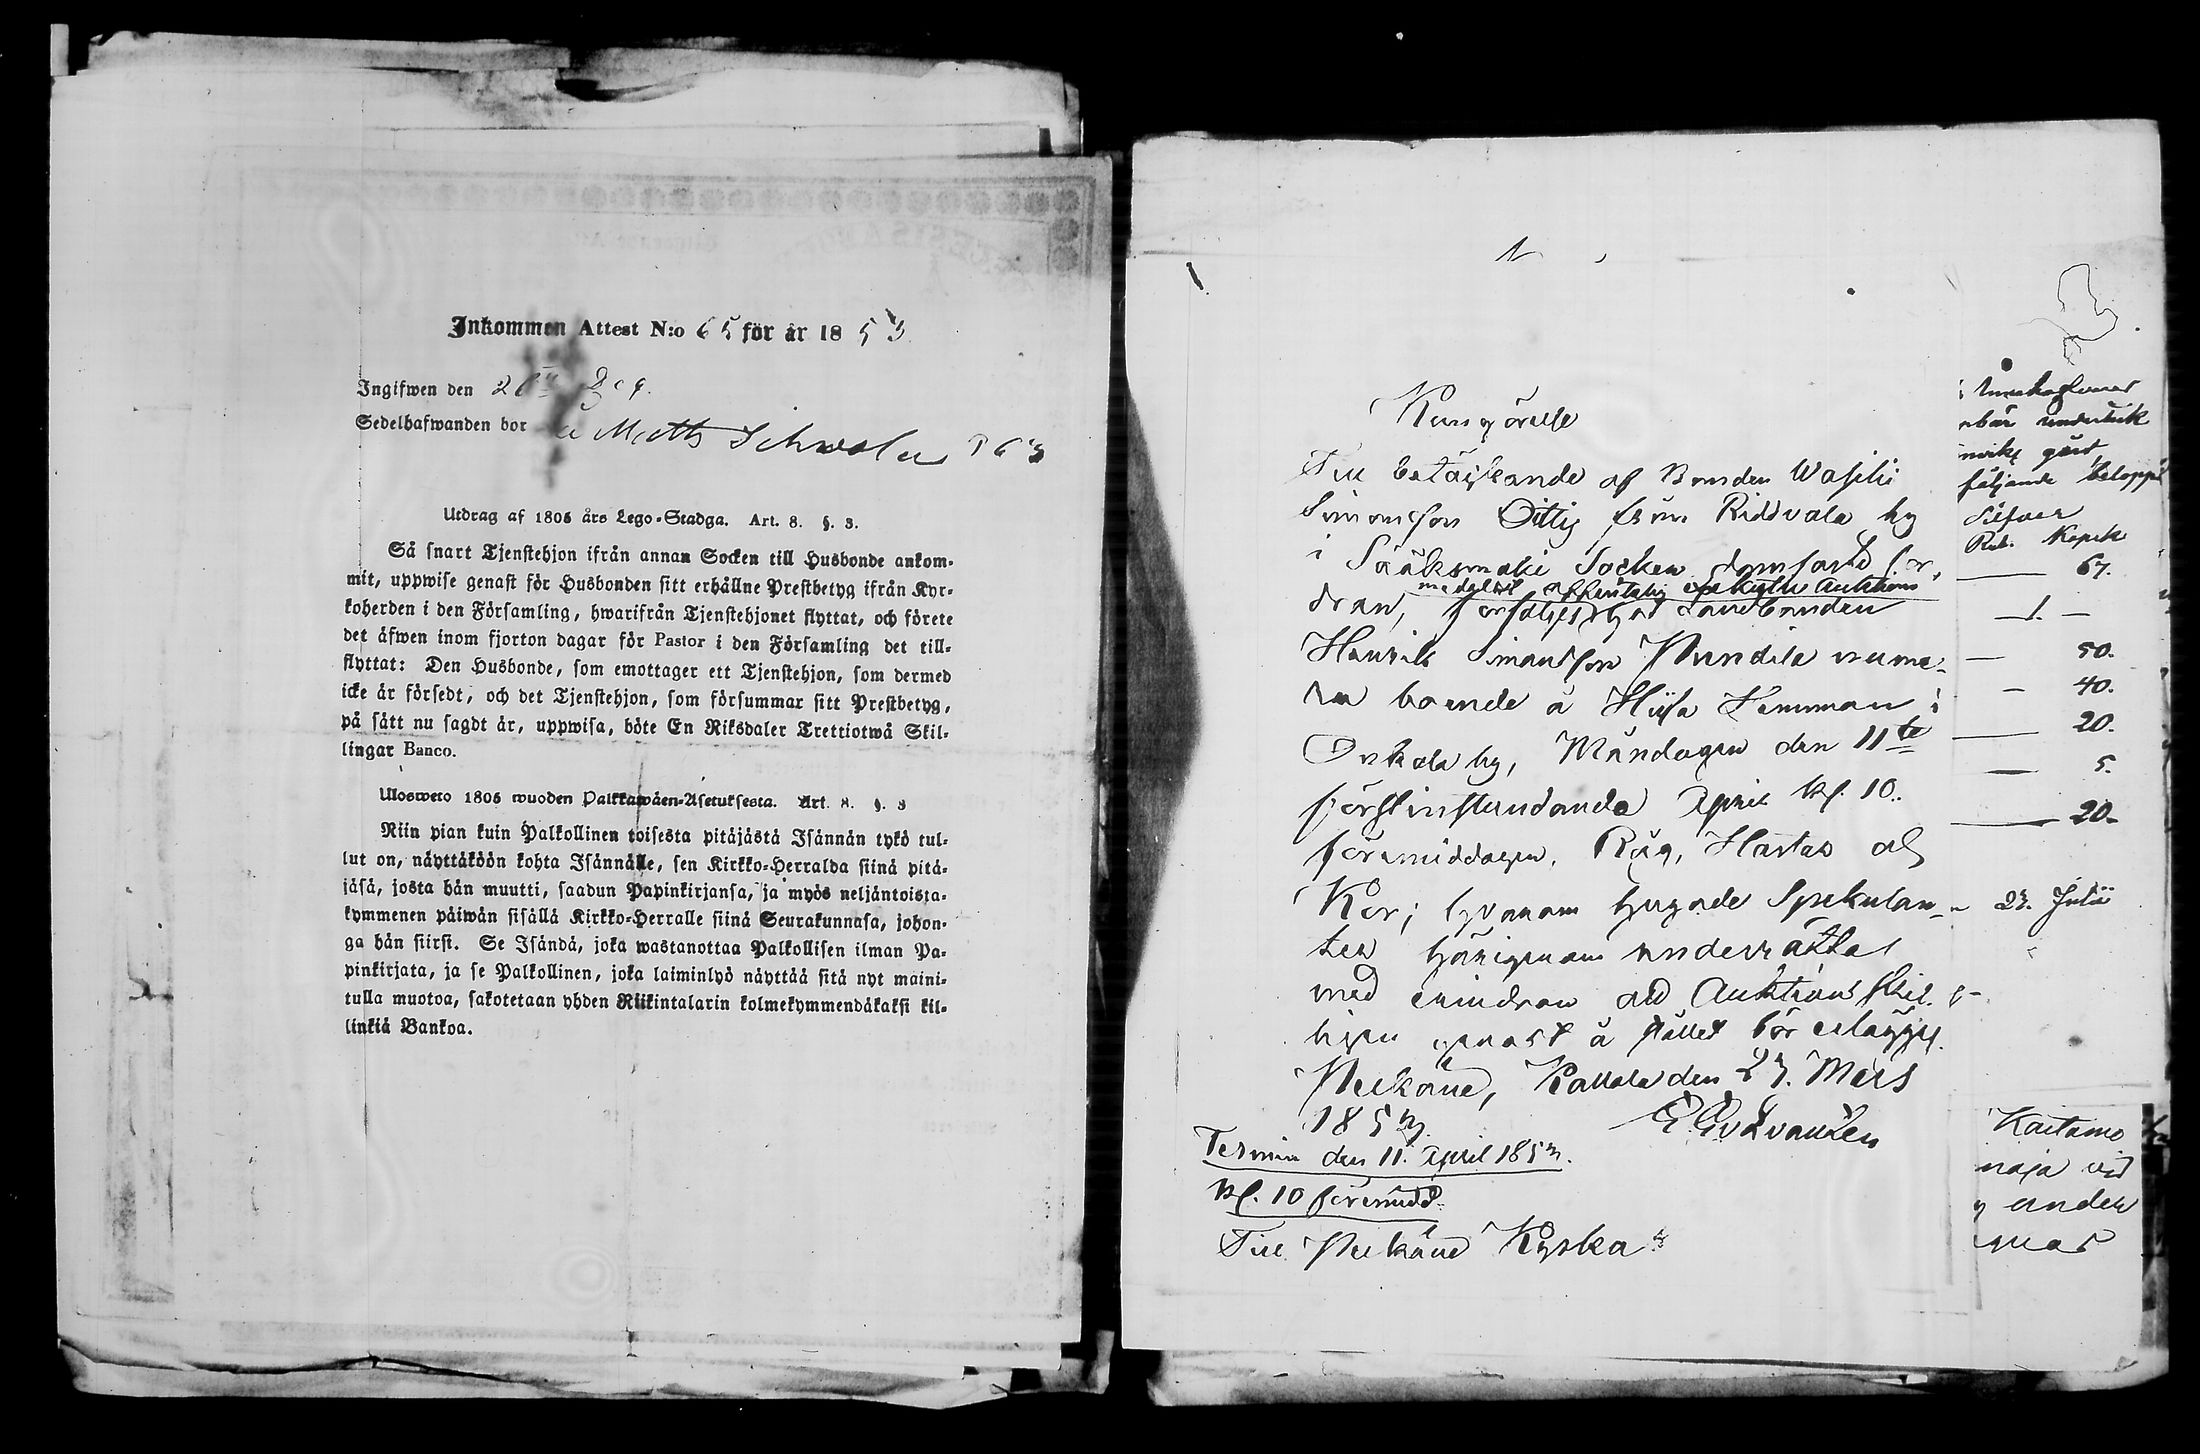 Inkommen Attest N:o 65 för år 1853
Ingifwen den
Sedelhafwanden bor Matts
Utdrag af 1805 års Lego-Stadga. Art. 8. §. 3.
Så snart Tjenstehjon ifrån annan Socken till Husbonde ankom-
mit, uppwise genast för Husbonden sitt erhållne Prestbetyg ifrån Kyr-
koherden i den Församling, hwarifrån Tjenstehjonet flyttat, och förete
det äfwen inom fjorton dagar för Pastor i den Församling det till-
flyttat: Den Husbonde, som emottager ett Tjenstehjon, som dermed
icke är försedt, och det Tjenstehjon, som försummar sitt Prestbetyg,
på sätt nu sagdt är, uppwisa, böte En Riksdaler Trettiotwå Skil-
lingar Banco.
Ulosweto 1805 wuoden Palkkawäen-Asetuksesta. Art. 8. §. 3
Niin pian kuin Palkollinen toisesta pitäjästä Isännän tykö tul-
lut on, näyttäköön kohta Isännälle, sen Kirkko-Herralda siinä pitä-
jäsä, josta hän muutti, saadun Papinkirjansa, ja myös neljäntoista-
kymmenen päiwän sisällä Kirkko-Herralle siinä Seurakunnasa, johon-
ga hän siirsi. Se Isändä, joka wastanottaa Palkollisen ilman Pa-
pinkirjata, ja se Palkollinen, joka laiminlyö näyttää sitä nyt maini-
tulla muotoa, sakotetaan yhden Riikintalarin kolmekymmendäkaksi kil-
linkiä Bankoa.
Kungörelse
Till betäckande af Bonden Wasili
Simonsson Ottig från Riddvala by
i Sääksmäki Socken domfästd for,
medelst offentelig exekutiv Auktion
dran, försäljes hos Landbonden
Henrik Simonsson nume-
ra boende å Hiisa Hemman i
Onkala by, Måndagen den 11te
förstinstundande April Kl. 10.
förmiddagen, Råg, Hästar och
Kor; hvarom hugade Spekulan-
ter härigenom underrättas
med erindran att Auktions skil-
lingen genast å stället bör erläggas.
Pelkäne, Kallola den 27. Mars
1853.
Termin den 11. April 1853.
Kl. 10 förmidd.
Till Pelkäne Kyrka
följande belopp
Silfver
Rub. Kopek
67.
1. —
50.
40.
20.
5.
20.
23. Julii